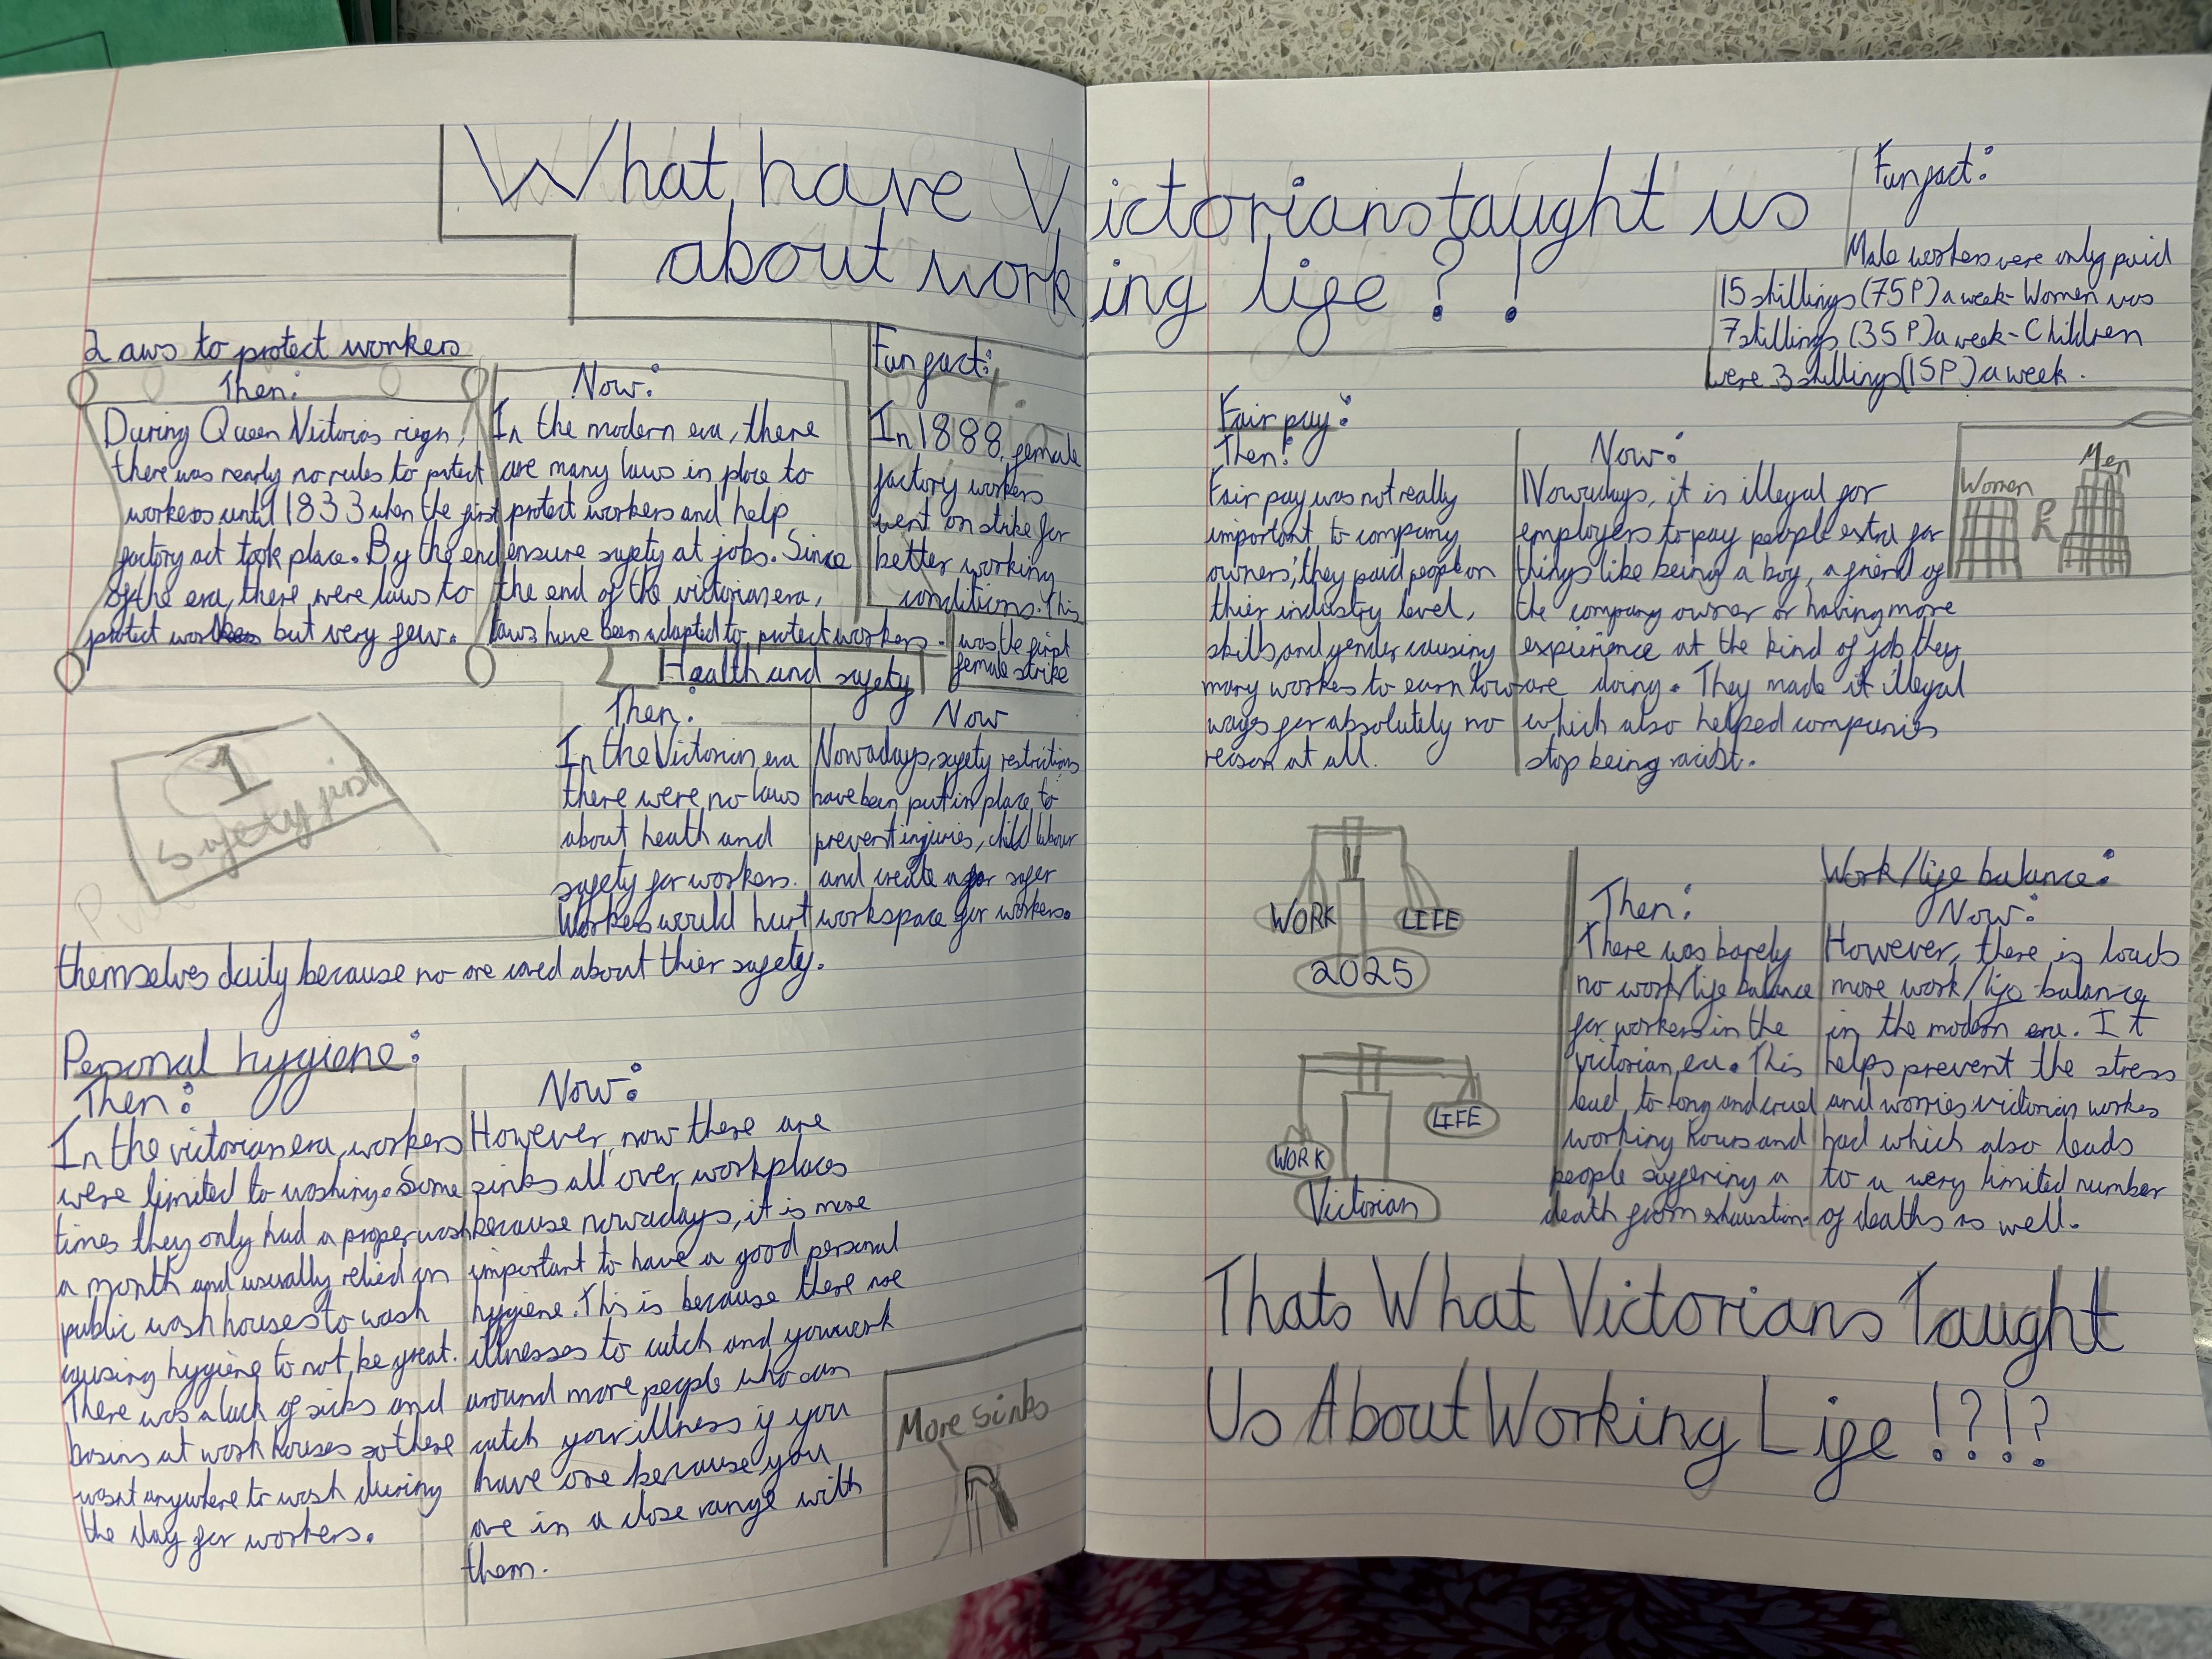 What have Victorians taught us
about working life?!
Fun fact:
Male workers were only paid
15 shillings (75P) a week- Women was
7 shillings (35P) a week- Children
were 3 shillings (15P) a week.
Laws to protect workers
Then:
During Queen Victorias reign,
there was nearly no rules to protect
workers until 1833 when the first
factory act took place. By the end
of the era, there were laws to
protect workers but very few.
Now:
In the modern era, there
are many laws in place to
protect workers and help
ensure safety at jobs. Since
the end of the victorian era,
laws have been adapted to protect workers.
Fun fact:
In 1888, female
factory workers
went on strike for
better working
conditions. This
was the first
female strike
Health and safety
Then:
In the Victorian era
there were no laws
about heath and
safety for workers.
Workers would hurt
themselves daily because no one cared about thier safety.
Now
Nowadays, safety restrictions
have been put in place to
prevent injuries, child labour
and create a far safer
workspace for workers.
1
Safety first
Personal hygiene:
Then:
In the victorian era, workers
were limited to washing. Some
times they only had a proper wash
a month and usually relied on
public wash houses to wash
causing hygiene to not be great.
There was a lack of sicks and
basins at work houses so there
wasnt anywhere to wash during
the day for workers.
Now:
However, now there are
sinks all over workplaces
because nowadays, it is more
important to have a good personal
hygiene. This is because there are
illnesses to catch and you work
around more people who can
catch your illness if you
have one because you
are in a close range with
them.
More sinks
Fair pay:
Then:
Fair pay was not really
important to company
owners; they paid people on
thier industry level,
skills, and gender causing
many workes to earn low
wages for absolutely no
reason at all.
Now:
Nowadays, it is illegal for
employers to pay people extra for
things like being a boy, a friend of
the company owner or having more
expierience at the kind of job they
are doing. They made it illegal
which also helped companies
stop being racist.
Women
Men
WORK
LIFE
2025
WORK
LIFE
Victorian
Work/life balance:
Then:
There was barely
no work/life balance
for workers in the
victorian era. This
lead to long and cruel
working hours and
people suffering a
death from exhaustion.
Now:
However, there is loads
more work/life balance
in the modern era. It
helps prevent the stress
and worries victorian workes
had which also leads
to a very limited number
of deaths as well.
Thats What Victorians Taught
Us About Working Life!?!?